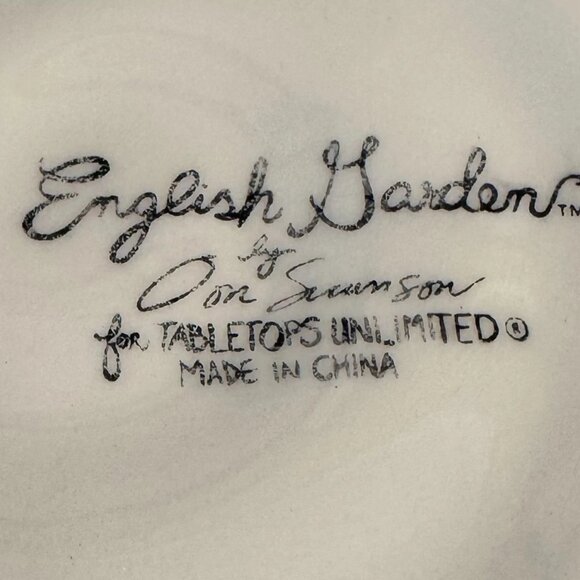 English Garden™
by
Jon Swanson
for TABLETOPS UNLIMITED®
MADE IN CHINA